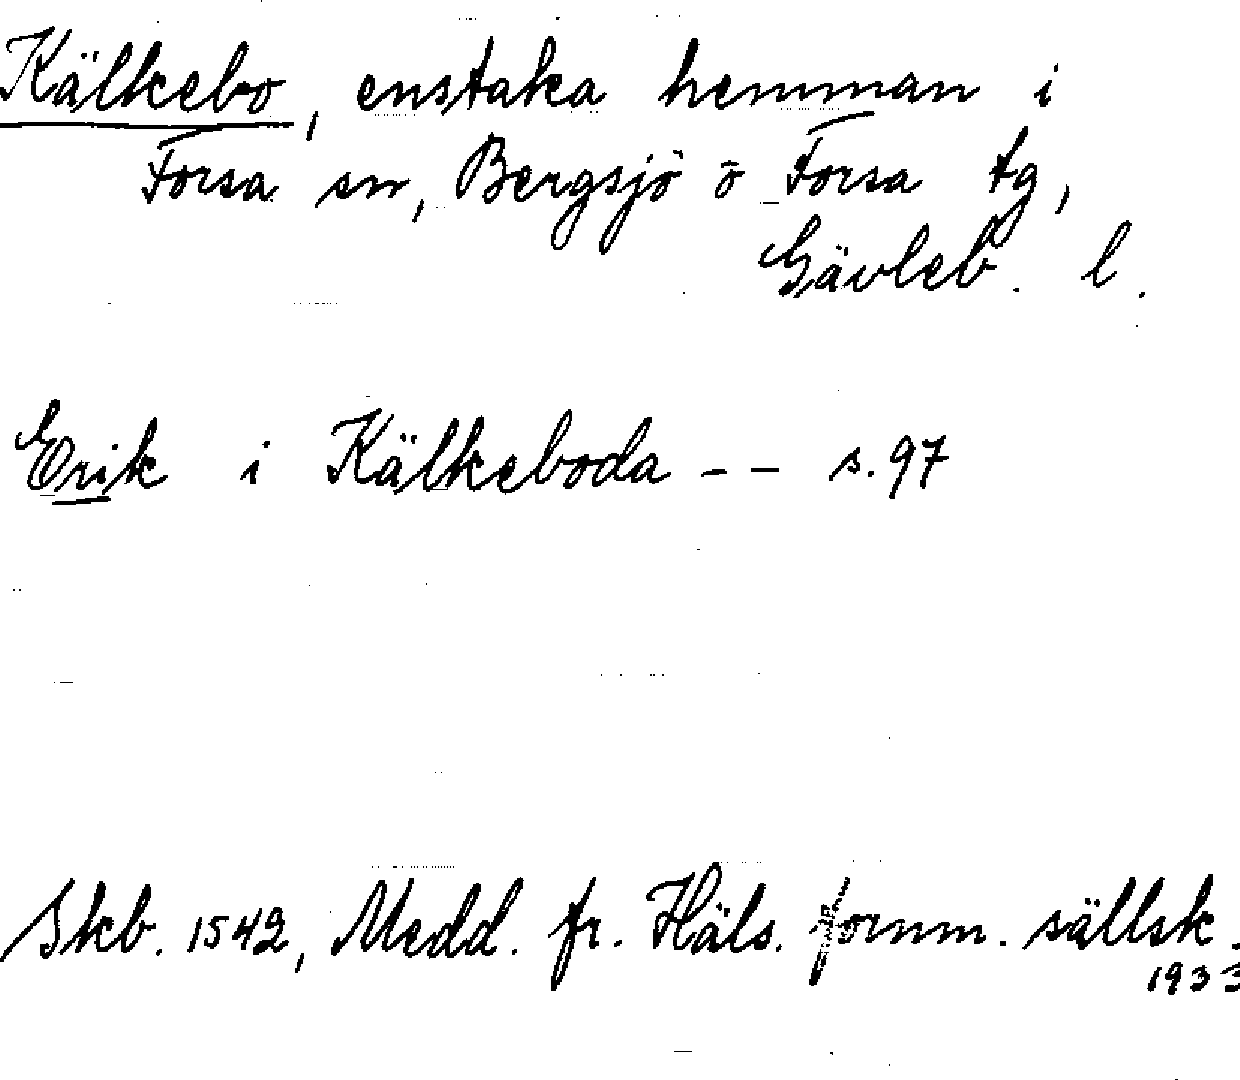 Kälkebo, enstaka hemman i
Forsa sn, Bergsjö o Forsa tg,
Gävleb. l.
Erik i Kälkeboda -- s. 97
Skb. 1542, Medd. fr. Häls. fornm. sällsk.
1933